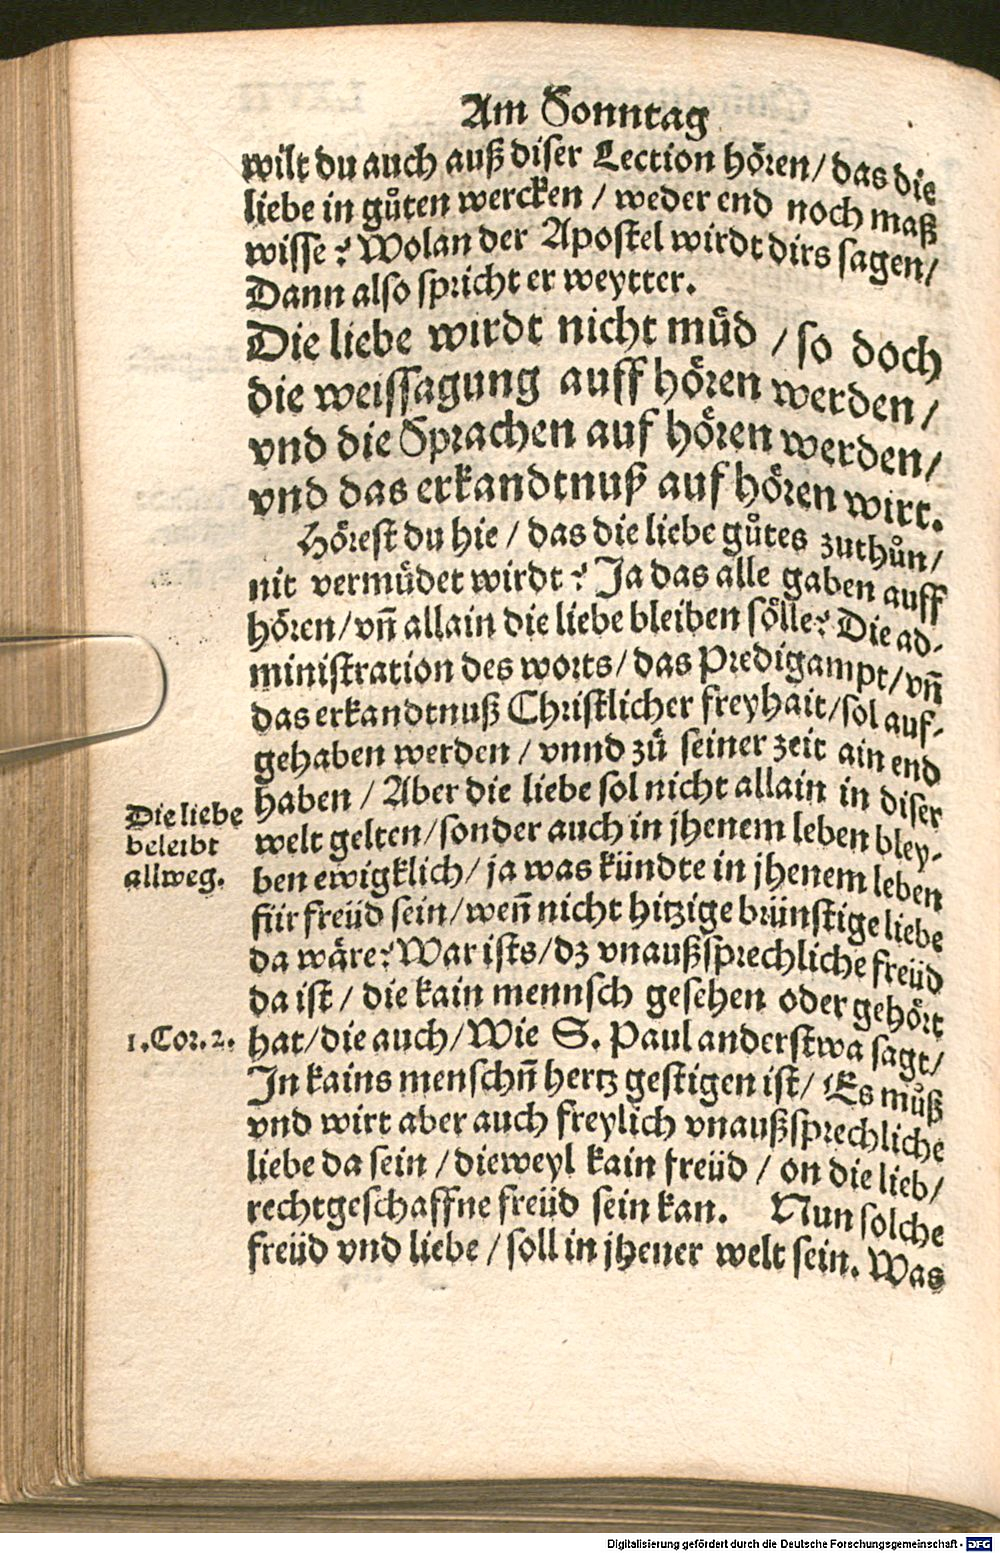 Am Sonntag
wilt du auch auß diser Lection hören / das die
liebe in gůten wercken / weder end noch maß
wisse? Wolan der Apostel wirdt dirs sagen /
Dann also spricht er weytter.
Die liebe wirdt nicht müd / so doch
die weissagung auff hören werden /
vnd die Sprachen auf hören werden /
vnd das erkandtnuß auf hören wirt.
Hörest du hie / das die liebe gůtes zuthůn /
nit vermüdet wirdt? Ja das alle gaben auff
hören / vñ allain die liebe bleiben sölle? Die ad-
ministration des worts / das Predigampt / vñ
das erkandtnuß Christlicher freyhait / sol auf-
gehaben werden / vnnd zů seiner zeit ain end
haben / Aber die liebe sol nicht allain in diser
Die liebe
beleibt
allweg.
welt gelten / sonder auch in jhenem leben bley-
ben ewigklich / ja was kündte in jhenem leben
für freüd sein / weñ nicht hitzige brünstige liebe
da wäre? War ists / dz vnaußsprechliche freüd
da ist / die kain mennsch gesehen oder gehört
1. Cor. 2.
hat / die auch / Wie S. Paul anderstwa sagt /
In kains menschñ hertz gestigen ist / Es můß
vnd wirt aber auch freylich vnaußsprechliche
liebe da sein / dieweyl kain freüd / on die lieb /
rechtgeschaffne freüd sein kan. Nun solche
freüd vnd liebe / soll in jhener welt sein. Was
Digitalisierung gefördert durch die Deutsche Forschungsgemeinschaft - DFG